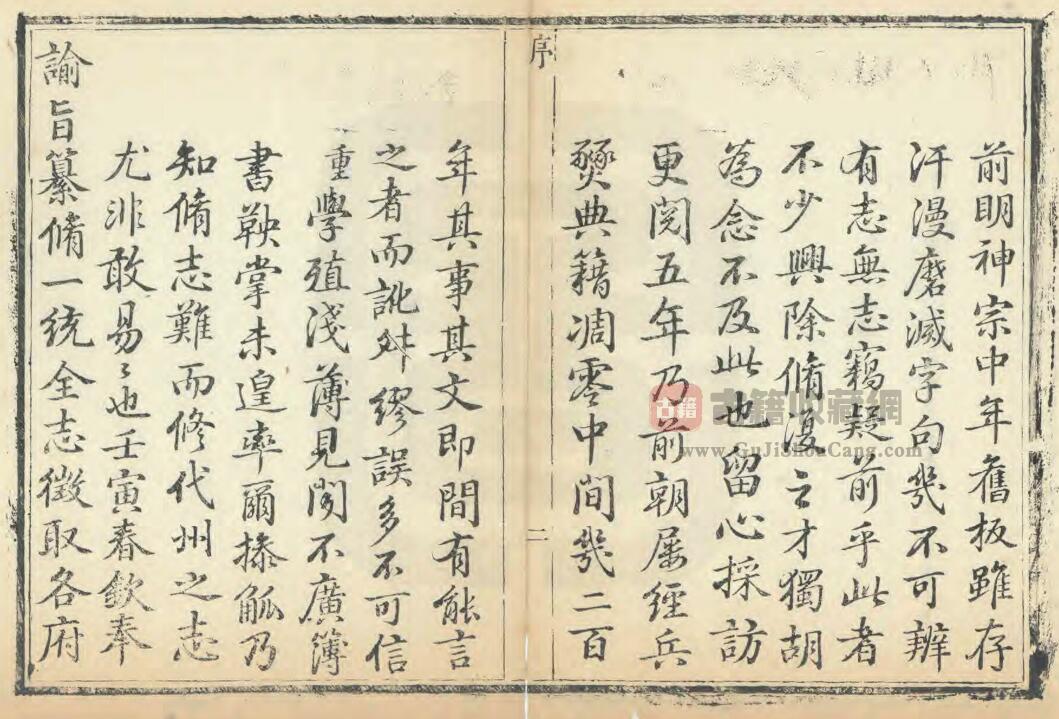 前明神宗中年舊板雖存
汗漫磨滅字句幾不可辨
有志無志竊疑前乎此者
不少興除脩復之才獨胡
為念不及此也留心採訪
更閱五年乃前朝屢經兵
燹典籍凋零中間幾二百
序
二
年其事其文即間有能言
之者而訛舛繆誤多不可信
重學殖淺薄見聞不廣簿
書鞅掌未遑率爾搽觚乃
知脩志難而修代州之志
尤非敢易〻也壬寅春欽奉
諭旨纂脩一統全志徵取各府
古籍
古籍收藏網
www.GuJiShouCang.com